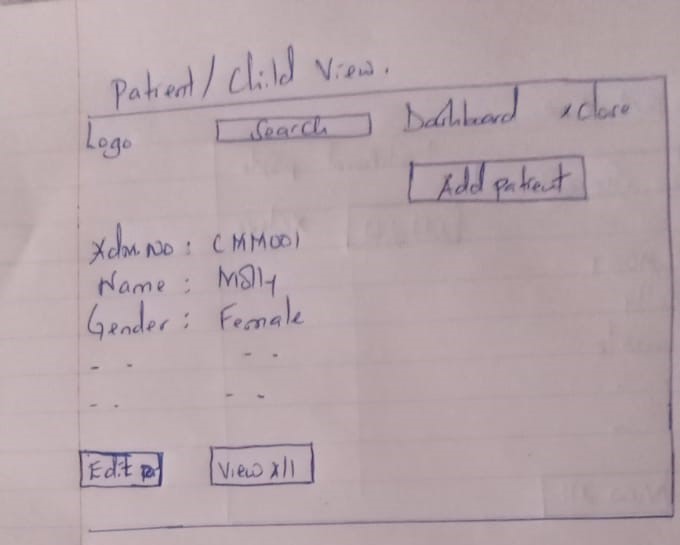 Patient/Child View.
Logo Search Dashboard x Close
Add patient
Adm. No : CMM001
Name : Molly
Gender : Female
- - - -
- - - -
Edit View All